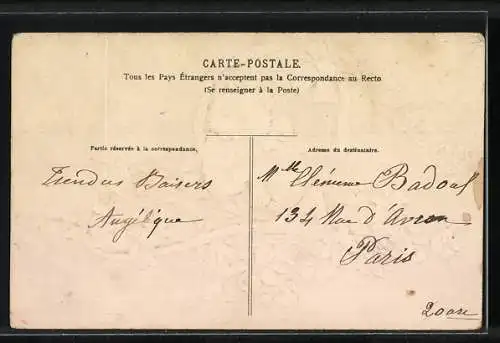 CARTE-POSTALE.
Tous les Pays Étrangers n'acceptent pas la Correspondance au Recto
(Se renseigner à la Poste)
Partie réservée à la correspondance.
Adresse du destinataire.
Tendres Baisers
Angélique
Mlle Clémence Badoul
134 Rue d'Avron
Paris